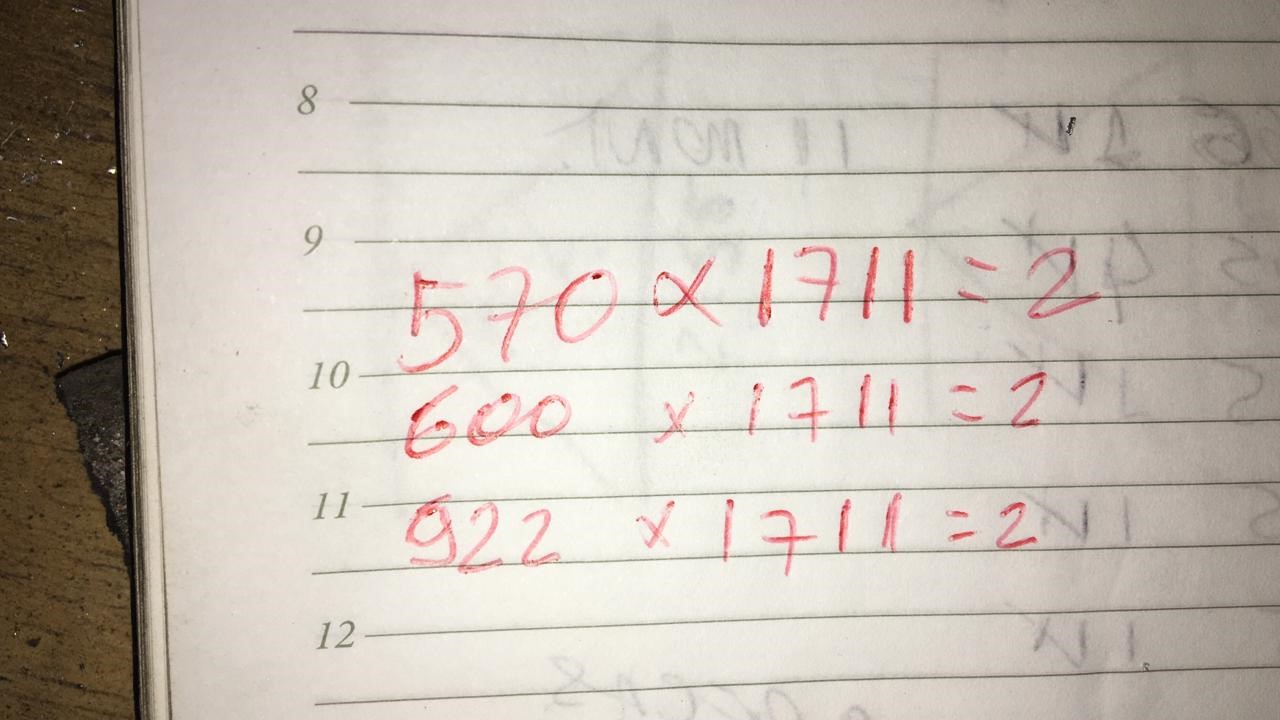 8
9
570 x 1711 = 2
10
600 x 1711 = 2
11
922 x 1711 = 2
12